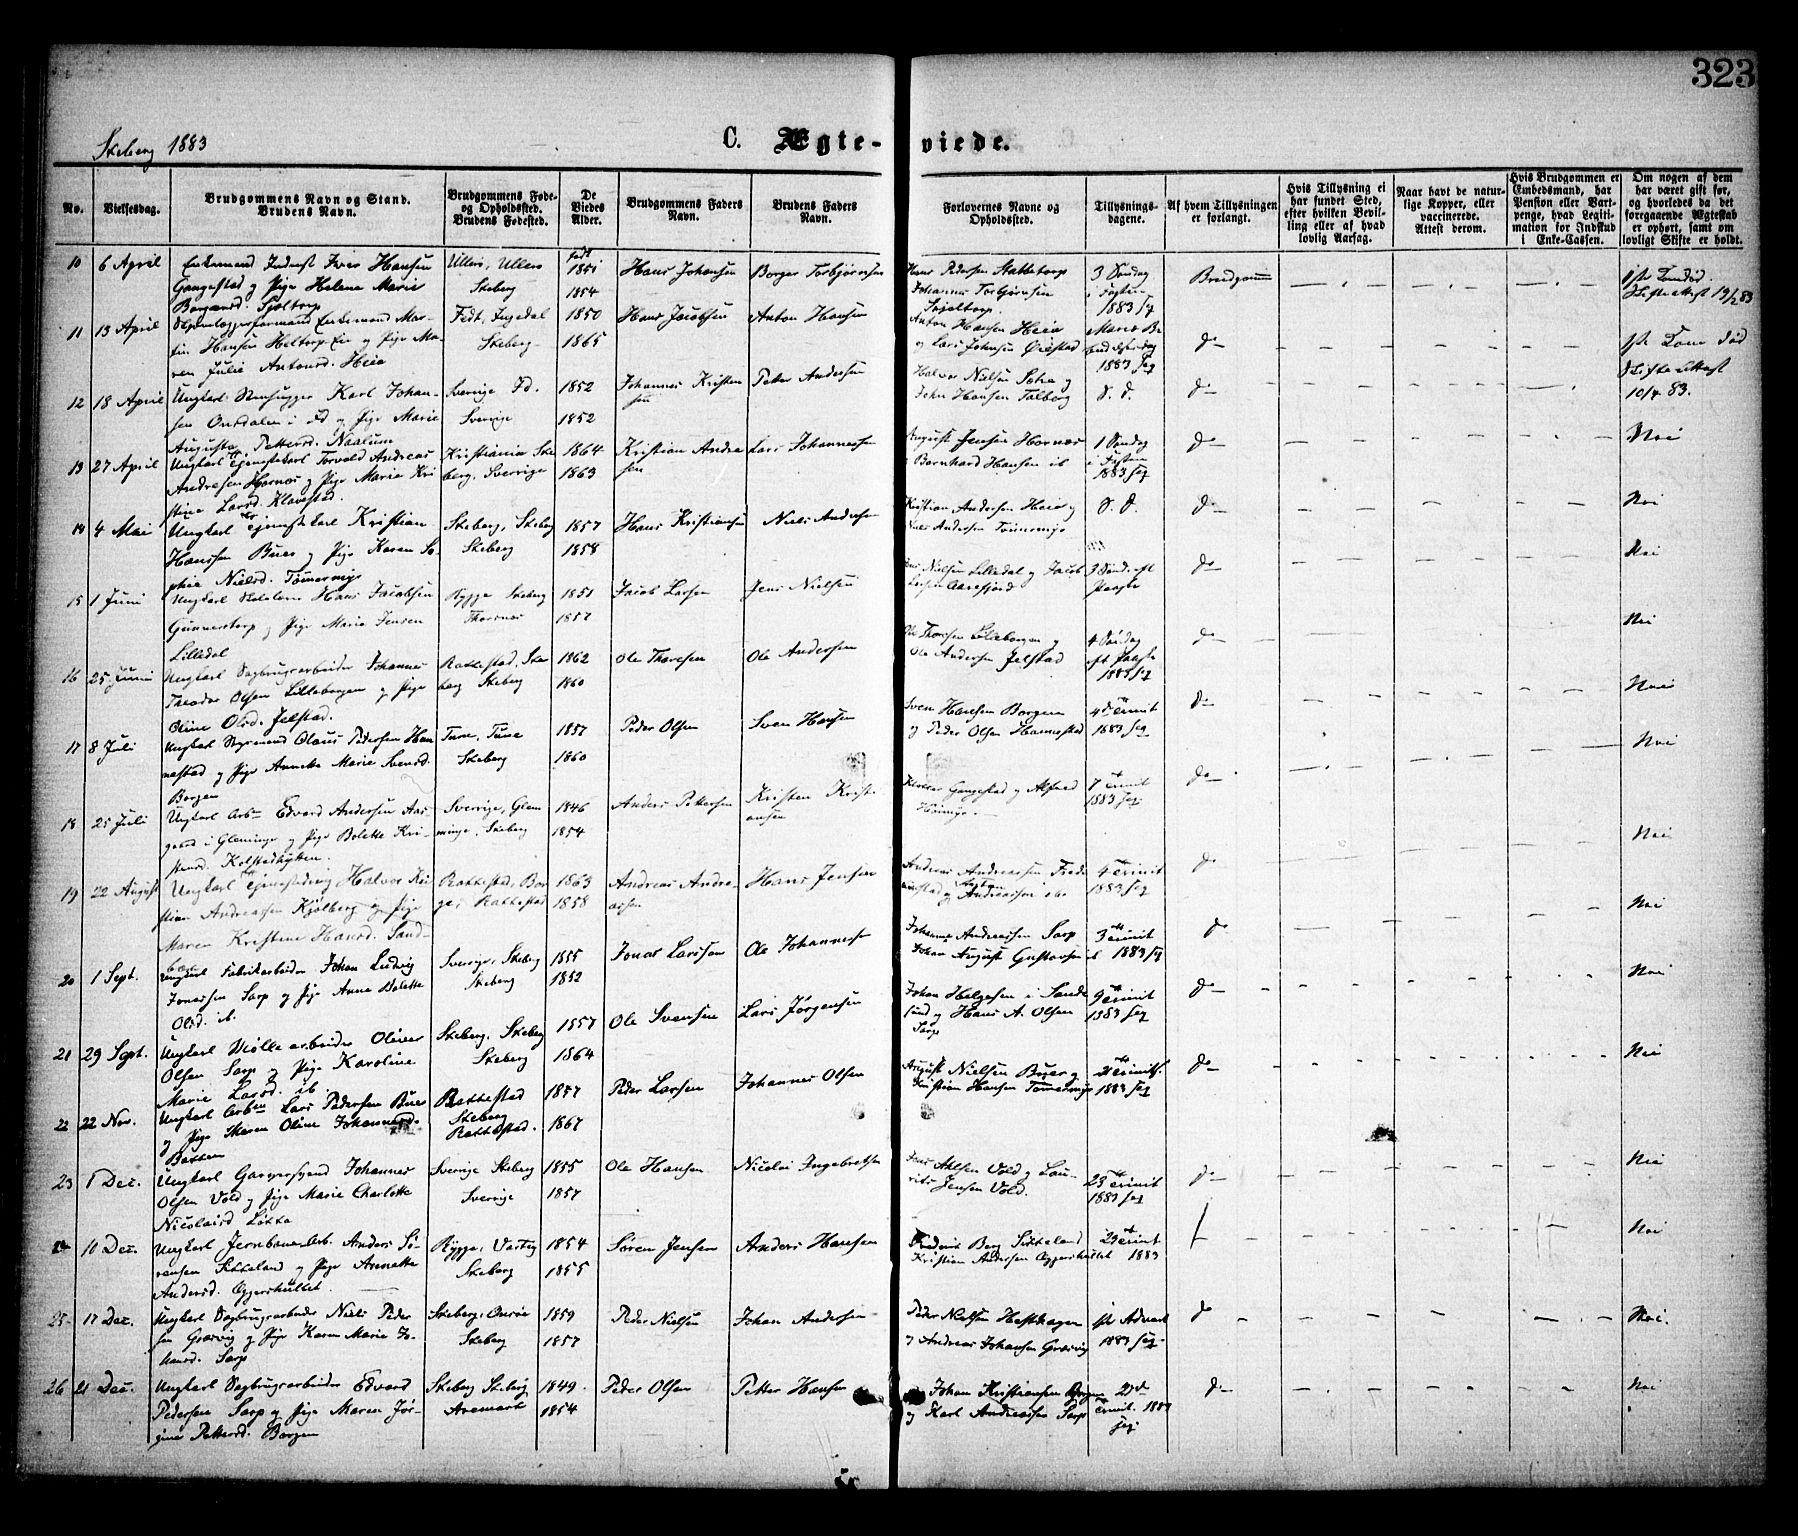 323
Skeberg 1883
C. Ægteviede.
No.
Vielsesdag.
Brudgommens Navn og Stand.
Brudens Navn.
Brudgommens Føde-
og Opholdssted.
Brudens Fødested.
De
Viedes
Alder.
Brudgommens Faders
Navn.
Brudens Faders
Navn.
Forlovernes Navne og
Opholdssted.
Tillysnings-
dagene.
Af hvem Tillysningen
er forlangt.
Hvis Tillysning ei
har fundet Sted,
efter hvilken Bevil-
ling eller af hvad
lovlig Aarsag.
Naar havt de natur-
lige Kopper, eller
vaccinerede.
Attest derom.
Hvis Brudgommen er
Embedsmand, har
Pension eller Vart-
penge, hvad Legiti-
mation for Indskud
i Enke-Cassen.
Om nogen af dem
har været gift før,
og hvorledes da det
foregaaende Ægteskab
er ophørt, samt om
lovligt Skifte er holdt.
10 6 April
Enkemand Inderst Iver Hansen
Gangestad og Pige Helene Marie
Borgersd. Sjoltorp
Ullerø, Ullerø
Skeberg
født
1851
1854
Hans Johansen
Borger Torbjørnsen
Hans Pedersen Stattetorp
Johannes Torbjørnsen
Sojoltorp.
3 Søndag
i Fasten
1883 sq
Brudgommen
Skifteattest 13/2 83
11 13 April
Enkemand Mar-
tin Hansen Heltorp Eie og Pige Ma-
ren Julie Antonsd. Heia
Fedt, Ingedal
Skeberg
1850
1865
Hans Jacobsen
Anton Hansen
Anton Hansen Heia
og Lars Johnsen Ørebstad
Mariæ Be
budelsesdag
1883 sq
do
død
Skifteattest
10/4 83.
12 18 April
Ungkarl Stenhugger Karl Johan-
sen Onsdalen i Id og Pige Marie
Augusta Pettersd. Naalum
Sverrige Id.
Sverrige
1852
1852
Johannes Kristen
sen
Petter Andersen
Halvor Nielsen Sotra og
John Hansen Talberg
S. D.
do
Nei
13 27 April
Ungkarl Tjenestekarl Torvald Andreas
Andresen Hornes og Pige Marie Kri
stine Larsd. Klavestad.
Kristiania Ske
berg, Sverrige
1864
1863
Kristian Andre
sen
Lars Johannessen
August Jensen Hornæs
Bernhard Hansen ib
1 Søndag
i Fasten
1883 sq
do
Nei
14 4 Mai
Ungkarl Tjenestekarl Kristian
Hansen Buer og Pige Karen So
phie Nielsd. Tømmermyr
Skeberg, Skeberg
Skeberg
1857
1858
Hans Kristiansen
Niels Andersen
Kristian Andersen Heia og
Niels Andersen Tømmermyr
S. D.
do
Nei
15 1 Juni
Ungkarl Hans Jacobsen
Gunnerstorp og Pige Marie Jensen
Lilledal
Rygge Skeberg
Thorsnæs
1851
1857
Jacob Larsen
Jens Nielsen
Jens Nielsen Lilledal og Jacob
Larsen
3 Sønd. eft
Paaske
do
Nei
16 25 Juni
Ungkarl Sagbrugsarbeider Johannes
Theodor Olsen Lilleborgen og Pige
Oline Olsd. Jelstad.
Rakkestad, Ske
berg Skeberg
1862
1860
Ole Thoresen
Ole Andersen
Ole Thoresen Lilleborgen og
Ole Andersen Jelstad
4 Søndag
eft Paaske
1883 sq
do
Nei
17 8 Juli
Ungkarl Styrmand Olaus Pedersen Han
nestad og Pige Annette Marie Svensd.
Borgen
Tune, Tune
Skeberg
1857
1860
Peder Olsen
Sven Hansen
Sven Hansen Borgen
og Peder Olsen Hannestad
4de Trinit
1883 sq
do
Nei
18 25 Juli
Ungkarl Arbm Edvard Andersen Aas-
gaard i Glemminge og Pige Bolette Kri-
stensd. Kolstadhytten.
Sverrige, Glem
minge, Skeberg
1846
1854
Anders Pettersen
Kristen Kristi
ansen
Gangestad og Alfred
7 Trinit
1883 sq
do
Nei
19 22 August
Ungkarl Halvor Kri
stian Andreassen Kjølberg og Pige
Maren Kristine Hansd. Sand-
Rakkestad, Bor
ge, Rakkestad
1863
1858
Andreas Andre-
assen
Hans Jensen
Andreas Andreassen Frede
rikstad og Andreassen ibo
4 Trinit
1883 sq
do
Nei
20 1 Sept.
Ungkarl Fabrikarbeider Johan Ludvig
Jonassen Sarp og Pige Anna Bolette
Olsd. ib.
Sverrige, Skeberg
Skeberg
1855
1852
Jonas Larsson
Ole Johannesen
Johannes Andreassen Sarp
Johan August Gustavsen ib
3 Trinit
1883 sq
do
Nei
21 29 Sept.
Ungkarl Møllearbeider Oliver
Olsen Sarp og Pige Karoline
Marie Larsd. ib
Skeberg, Skeberg
Skeberg
1857
1864
Ole Svensen
Lars Jørgensen
Johan Helgesen i Sande
sund og Hans A. Olsen
Sarp
9 Trinit
1883 sq
do
Nei
22 22 Nov.
Ungkarl Arbm Lars Pedersen Buer
og Pige Maren Oline Johannesd.
Bakken
Rakkestad
Skeberg
Rakkestad.
1857
1867
Peder Larsen
Johannes Olsen
August Nielsen Buer og
Kristian Hansen Tømmermyr
Trinit
1883 sq
do
Nei
23 1 Dec.
Ungkarl Garversvend Johannes
Olsen Vold og Pige Marie Charlotte
Nicolaisd Løkka
Sverrige Skeberg
Sverrige
1855
1857
Ole Hansen
Nicolai Ingebretsen
Vold og Lau-
rits Jensen Vold.
23 Trinit
1883 sq
do
Nei
24 10 Dec.
Ungkarl Jernbanearb. Anders Sø-
rensen Sikkeland og Pige Annette
Andersd. Aggershullet
Rygge, Varteig
Skeberg
1854
1855
Søren Jensen
Anders Hansen
Fredrik Berg Sikkeland
Kristian Andersen Aggershullet
23 Trinit
1883
Nei
25 17 Dec.
Ungkarl Sagbrugsarbeider Niels Peder
sen Græsvig og Pige Karen Marie Jo-
hansd. Sarp
Skeberg, Onsøe
Skeberg
1859
1857
Peder Nielsen
Johan Andersen
Peder Nielsen Hesthagen
og Andreas Johansen Græsvig
1ste Advent
1883 sq
do
Nei.
26 21 Dec.
Ungkarl Sagbrugsarbeider Edvard
Pedersen Sarp og Pige Maren Jør-
gine Pettersd. Borgen
Skeberg Skeberg
Aremark
1849
1854
Peder Olsen
Petter Hansen
Johan Kristiansen Borgen
og Karl Andreassen Sarp
21de
Trinit. 1883
sq
do
Nei